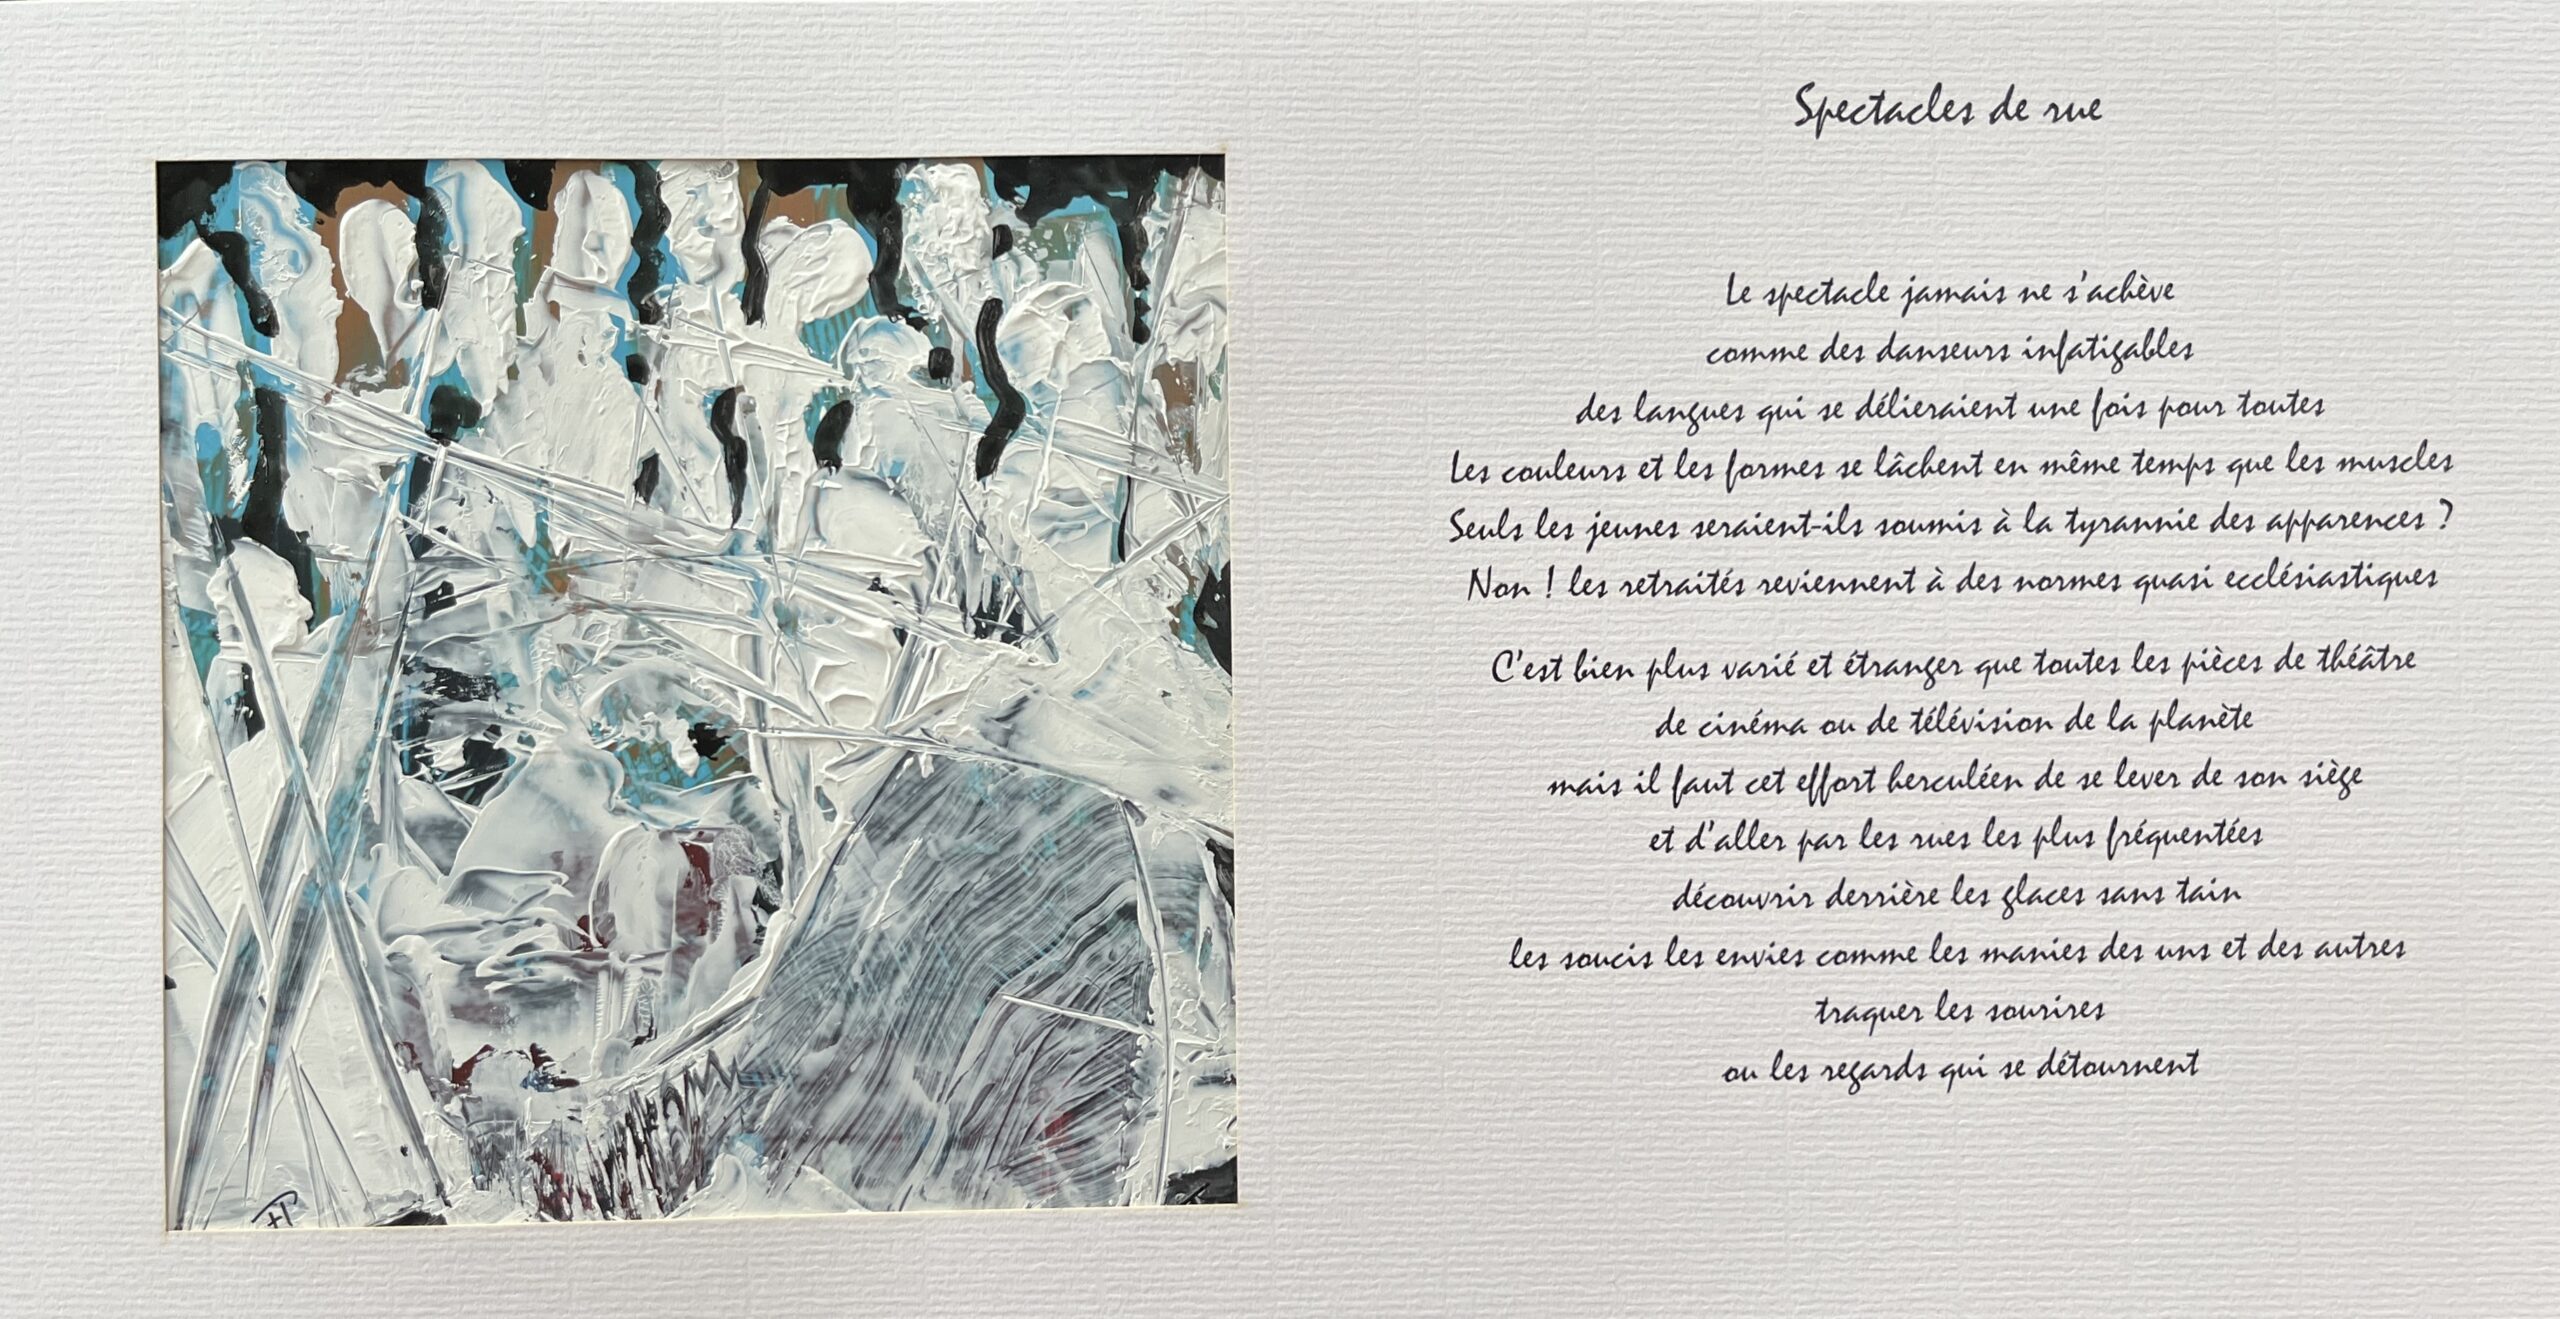 Spectacles de rue
Le spectacle jamais ne s'achève
comme des danseurs infatigables
des langues qui se délieraient une fois pour toutes
Les couleurs et les formes se lâchent en même temps que les muscles
Seuls les jeunes seraient-ils soumis à la tyrannie des apparences ?
Non ! les retraités reviennent à des normes quasi ecclésiastiques
C'est bien plus varié et étranger que toutes les pièces de théâtre
de cinéma ou de télévision de la planète
mais il faut cet effort herculéen de se lever de son siège
et d'aller par les rues les plus fréquentées
découvrir derrière les glaces sans tain
les soucis les envies comme les manies des uns et des autres
traquer les sourires
ou les regards qui se détournent